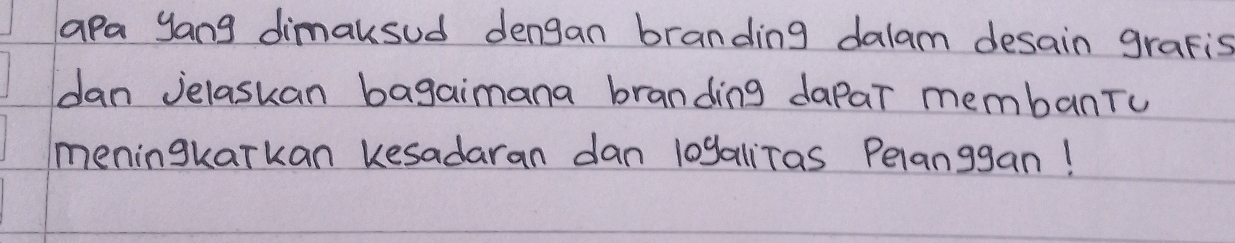 apa yang dimaksud dengan branding dalam desain grafis
dan jelaskan bagaimana branding dapat membantu
meningkatkan kesadaran dan loyalitas Pelanggan!